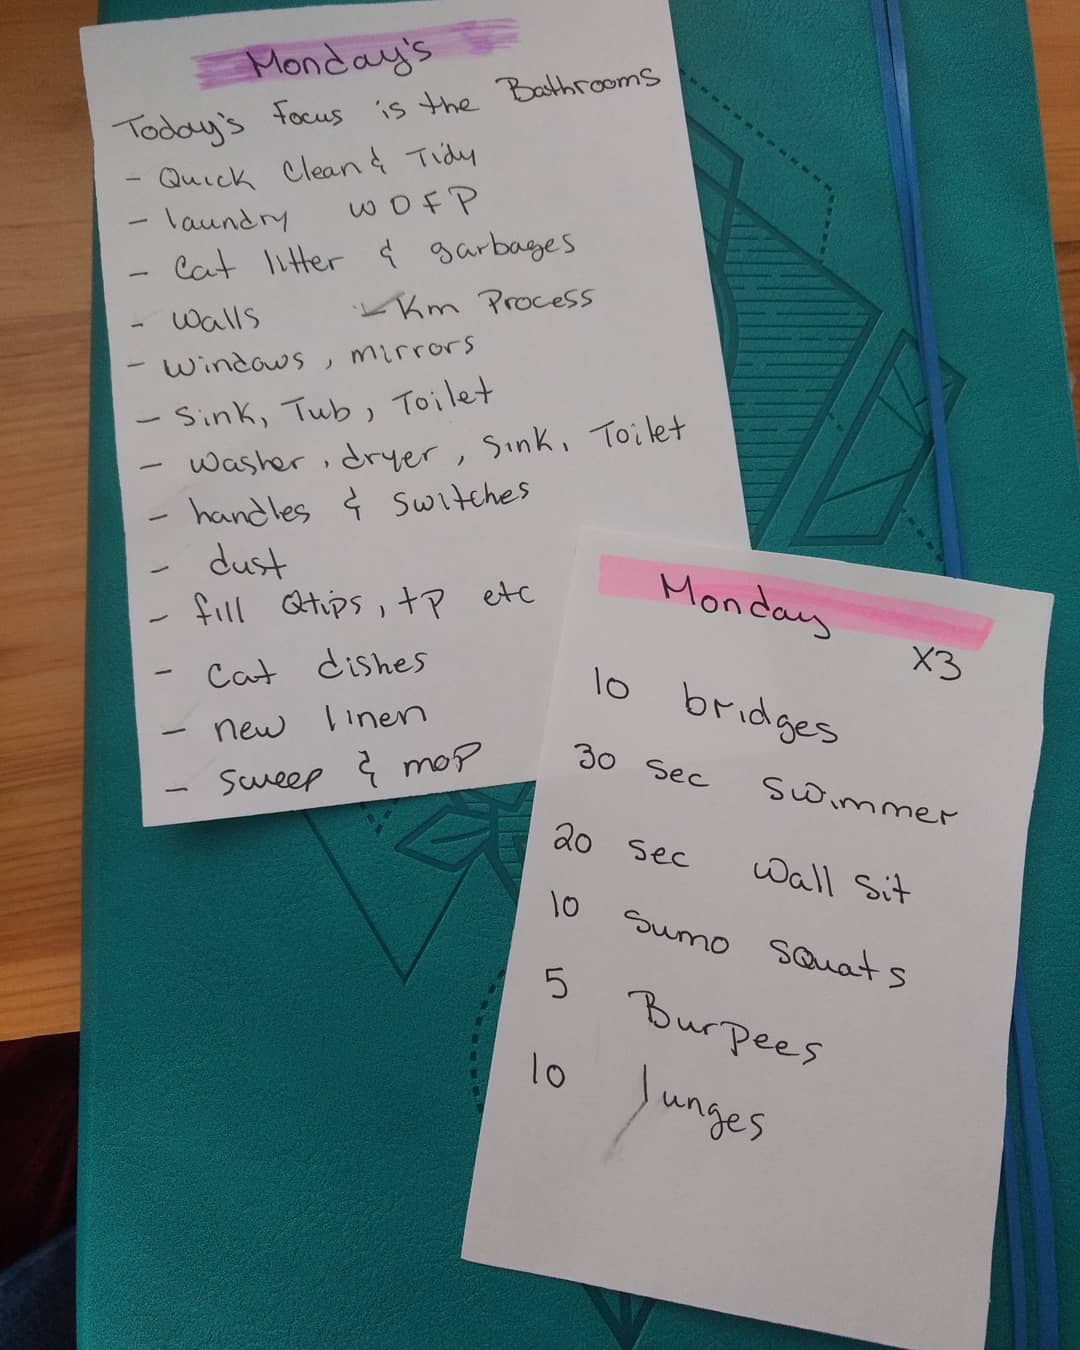 Monday's
Today's Focus is the Bathrooms
- Quick Clean & Tidy
- laundry W D F P
- Cat litter & garbages
- Walls Km Process
- Windows, mirrors
- Sink, Tub, Toilet
- Washer, dryer, Sink, Toilet
- handles & Switches
- dust
- fill Qtips, tp etc
- Cat dishes
- new linen
- Sweep & mop
Monday
X3
10 bridges
30 sec swimmer
20 sec Wall Sit
10 Sumo Squats
5 Burpees
10 lunges